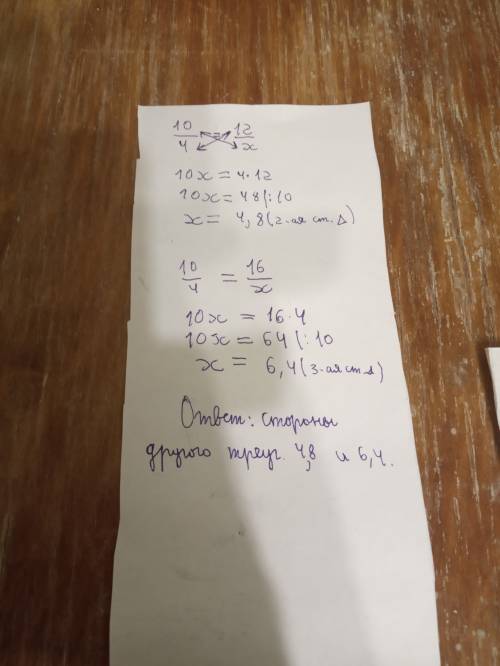 10/4 = 12/x
10x = 4·12
10x = 48 |:10
x = 4,8 (2-ая ст. Δ)
10/4 = 16/x
10x = 16·4
10x = 64 |:10
x = 6,4 (3-ая ст Δ)
Ответ: стороны
другого треуг. 4,8 и 6,4.